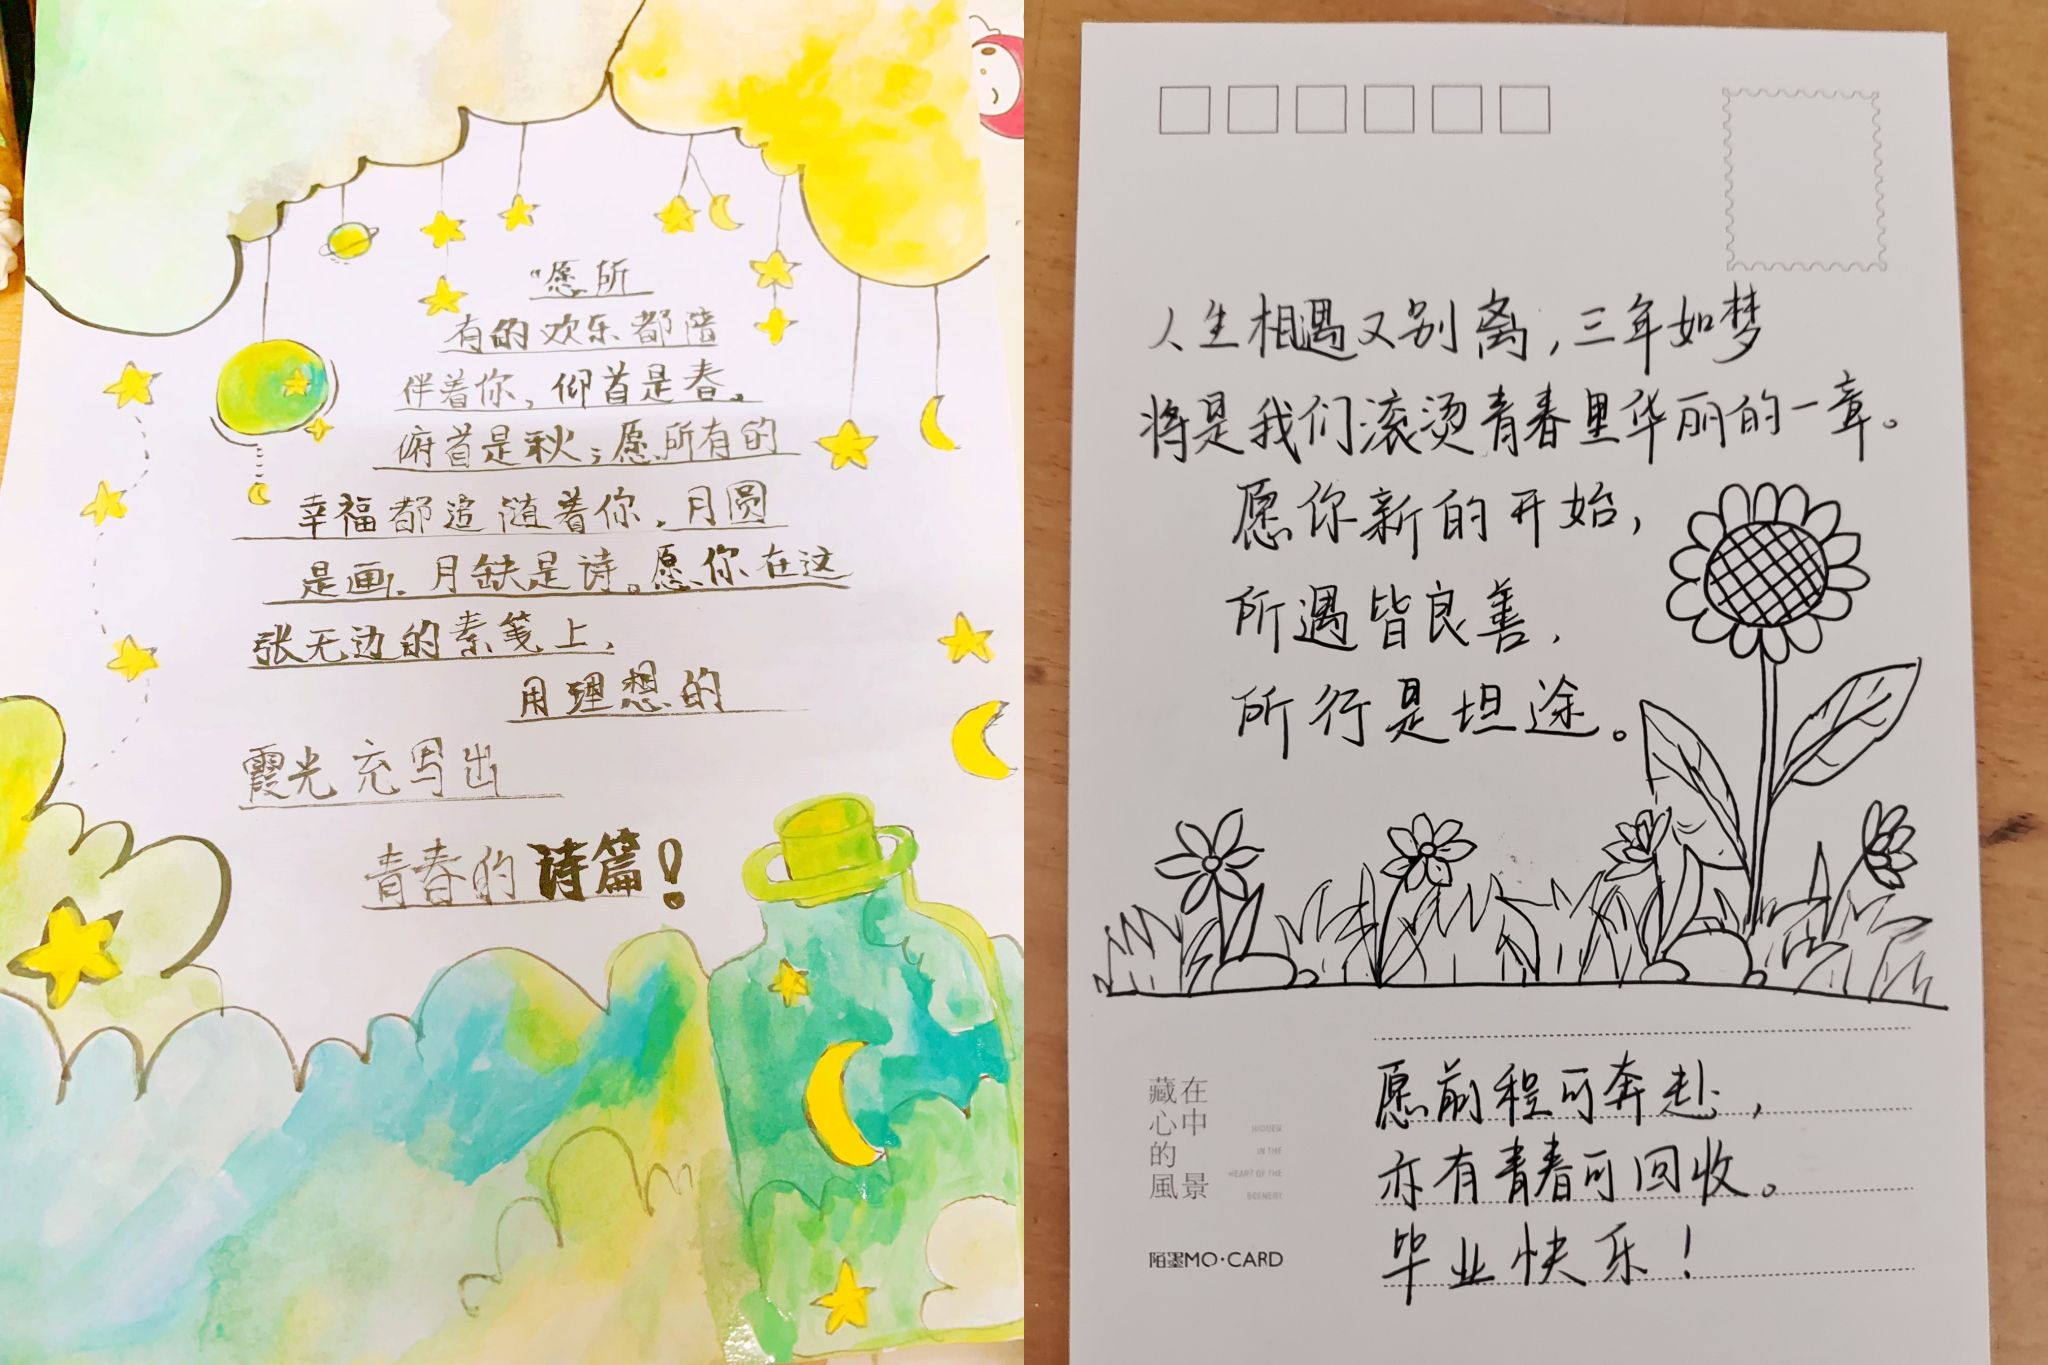 “愿所
有的欢乐都陪
伴着你，仰首是春。
俯首是秋；愿所有的
幸福都追随着你，月圆
是画，月缺是诗。愿你在这
张无边的素笺上，
用理想的
霞光充写出
青春的诗篇！
人生相遇又别离，三年如梦
将是我们滚烫青春里华丽的一章。
愿你新的开始，
所遇皆良善，
所行是坦途。
藏在
心中
的
風景
HIDDEN
IN THE
HEART OF THE
SCENERY
陌墨MO·CARD
愿前程可奔赴，
亦有青春可回收。
毕业快乐！